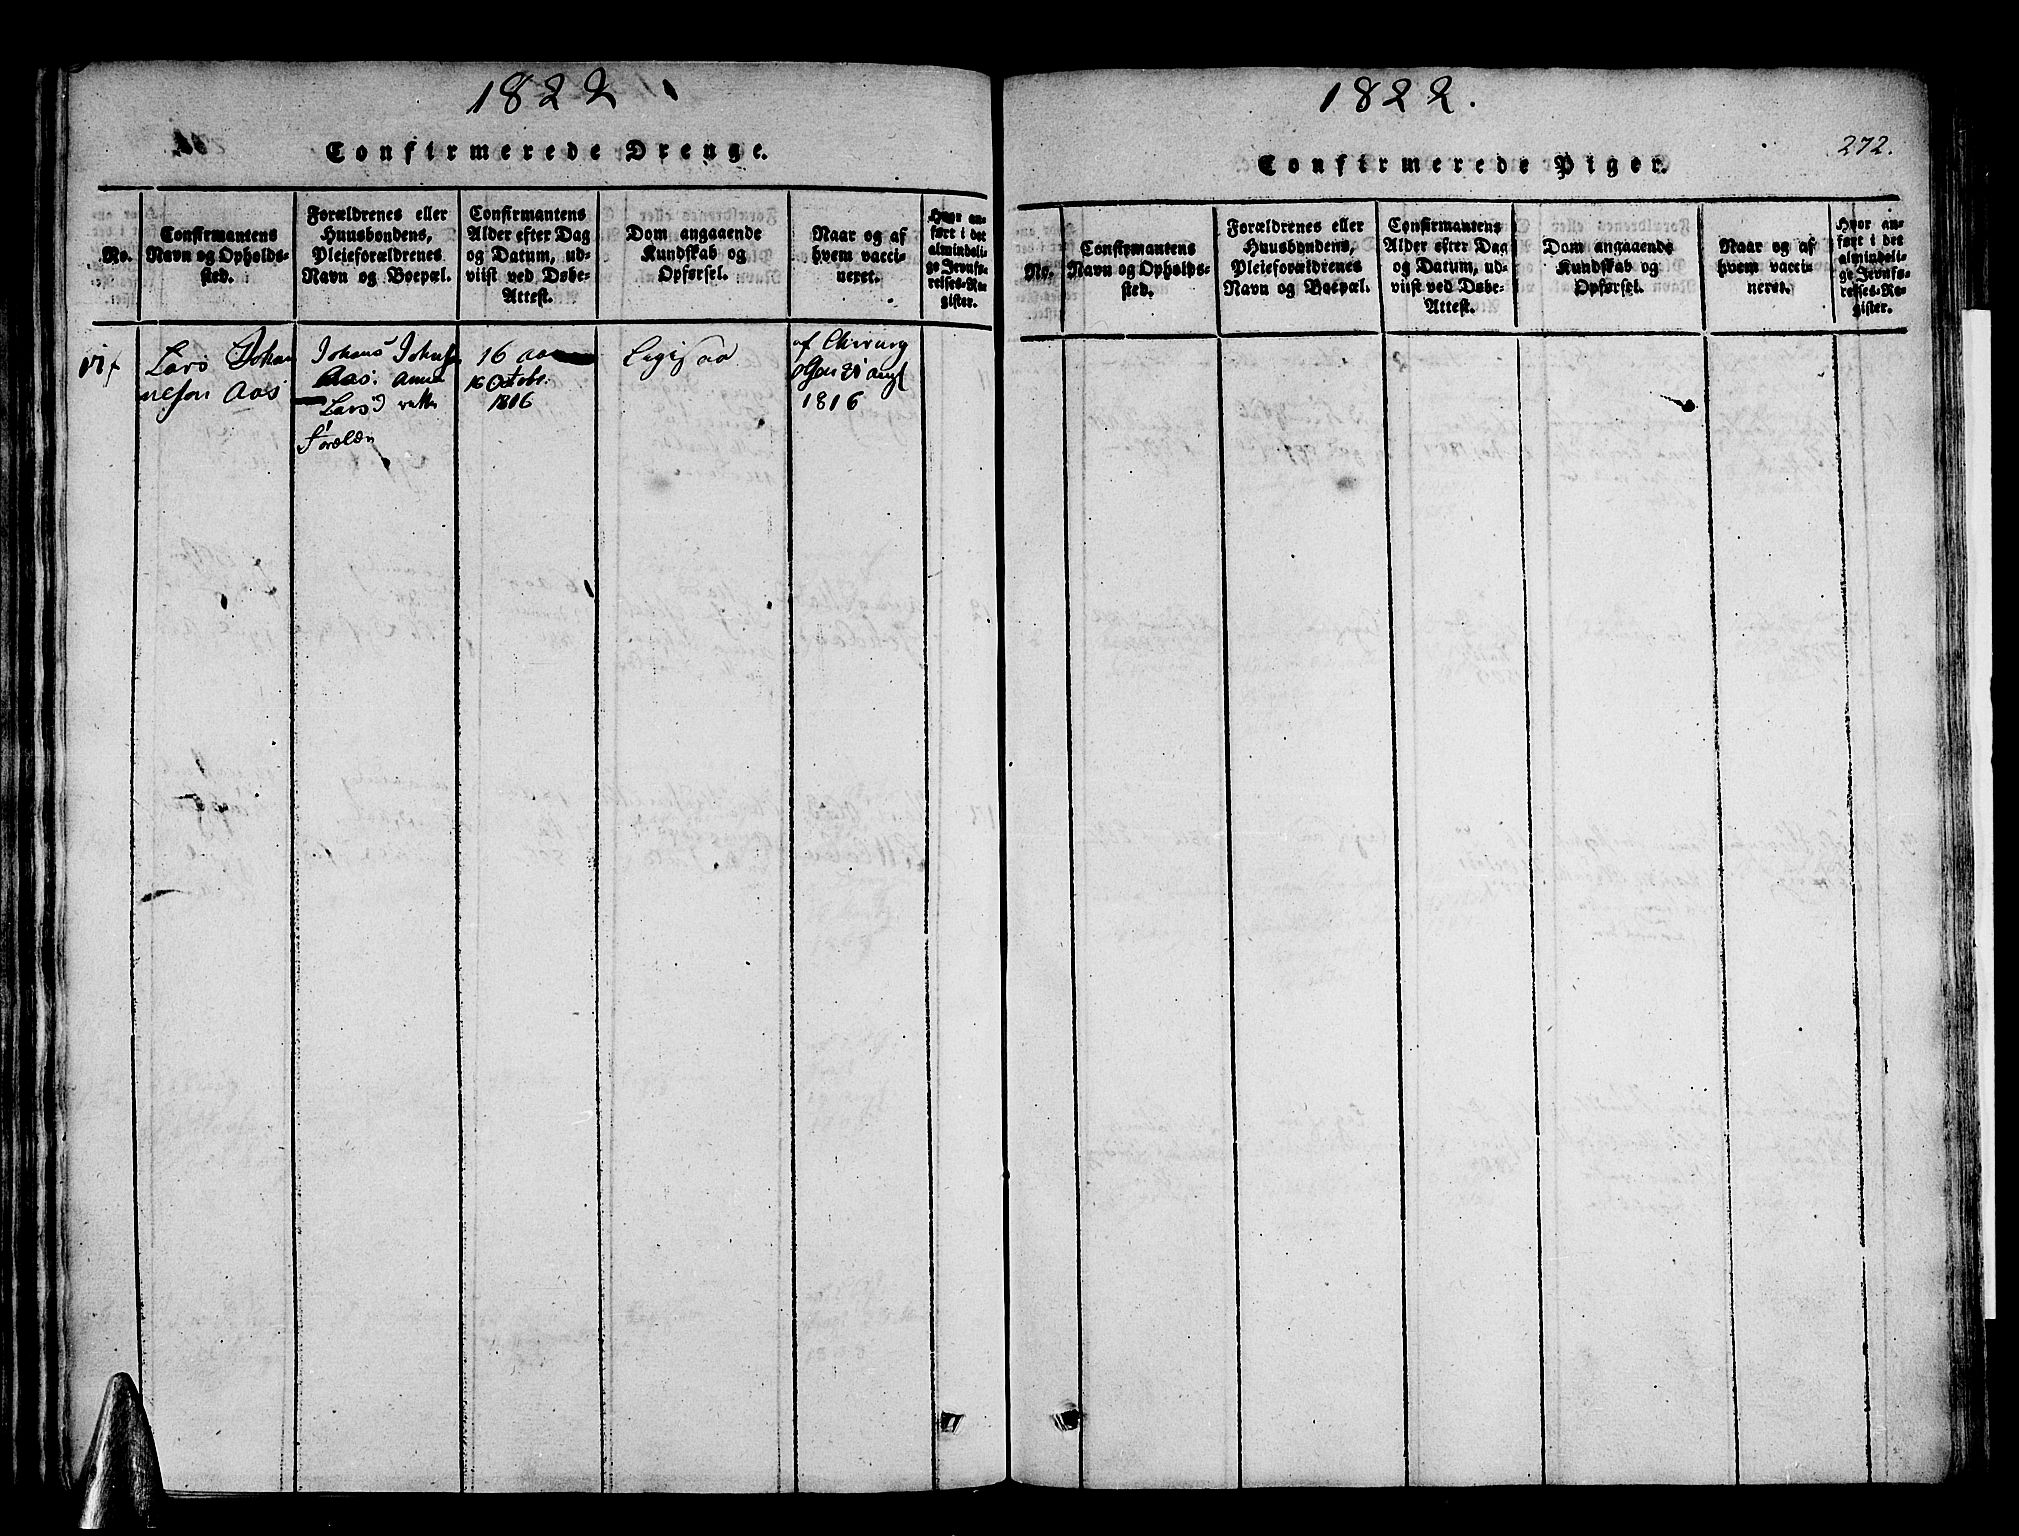 1822
Confirmerede Drenge.
No.
Confirmantens
Navn og Opholds-
sted.
Forældrenes eller
Huusbondens,
Pleieforældrenes
Navn og Boepæl.
Confirmantens
Alder efter Dag
og Datum, ud-
viist ved Døbe-
Attest.
Dom angaaende
Kundskab og
Opførsel.
Naar og af
hvem vacci-
neret.
Hvor an-
ført i det
almindeli-
ge Jevnfø-
relses-Re-
gister.
Lars Johan
nesen Aas
Johans
Aas. Anna
Lars
16 aar
16 Octobr.
1816
af Chirurg
1816
1822.
272.
Confirmerede Piger.
No.
Confirmantens
Navn og Opholds-
sted.
Forældrenes eller
Huusbondens,
Pleieforældrenes
Navn og Boepæl.
Confirmantens
Alder efter Dag
og Datum, ud-
viist ved Døbe-
Attest.
Dom angaaende
Kundskab og
Opførsel.
Naar og af
hvem vacci-
neret.
Hvor an-
ført i det
almindeli-
ge Jevnfø-
relses-Re-
gister.